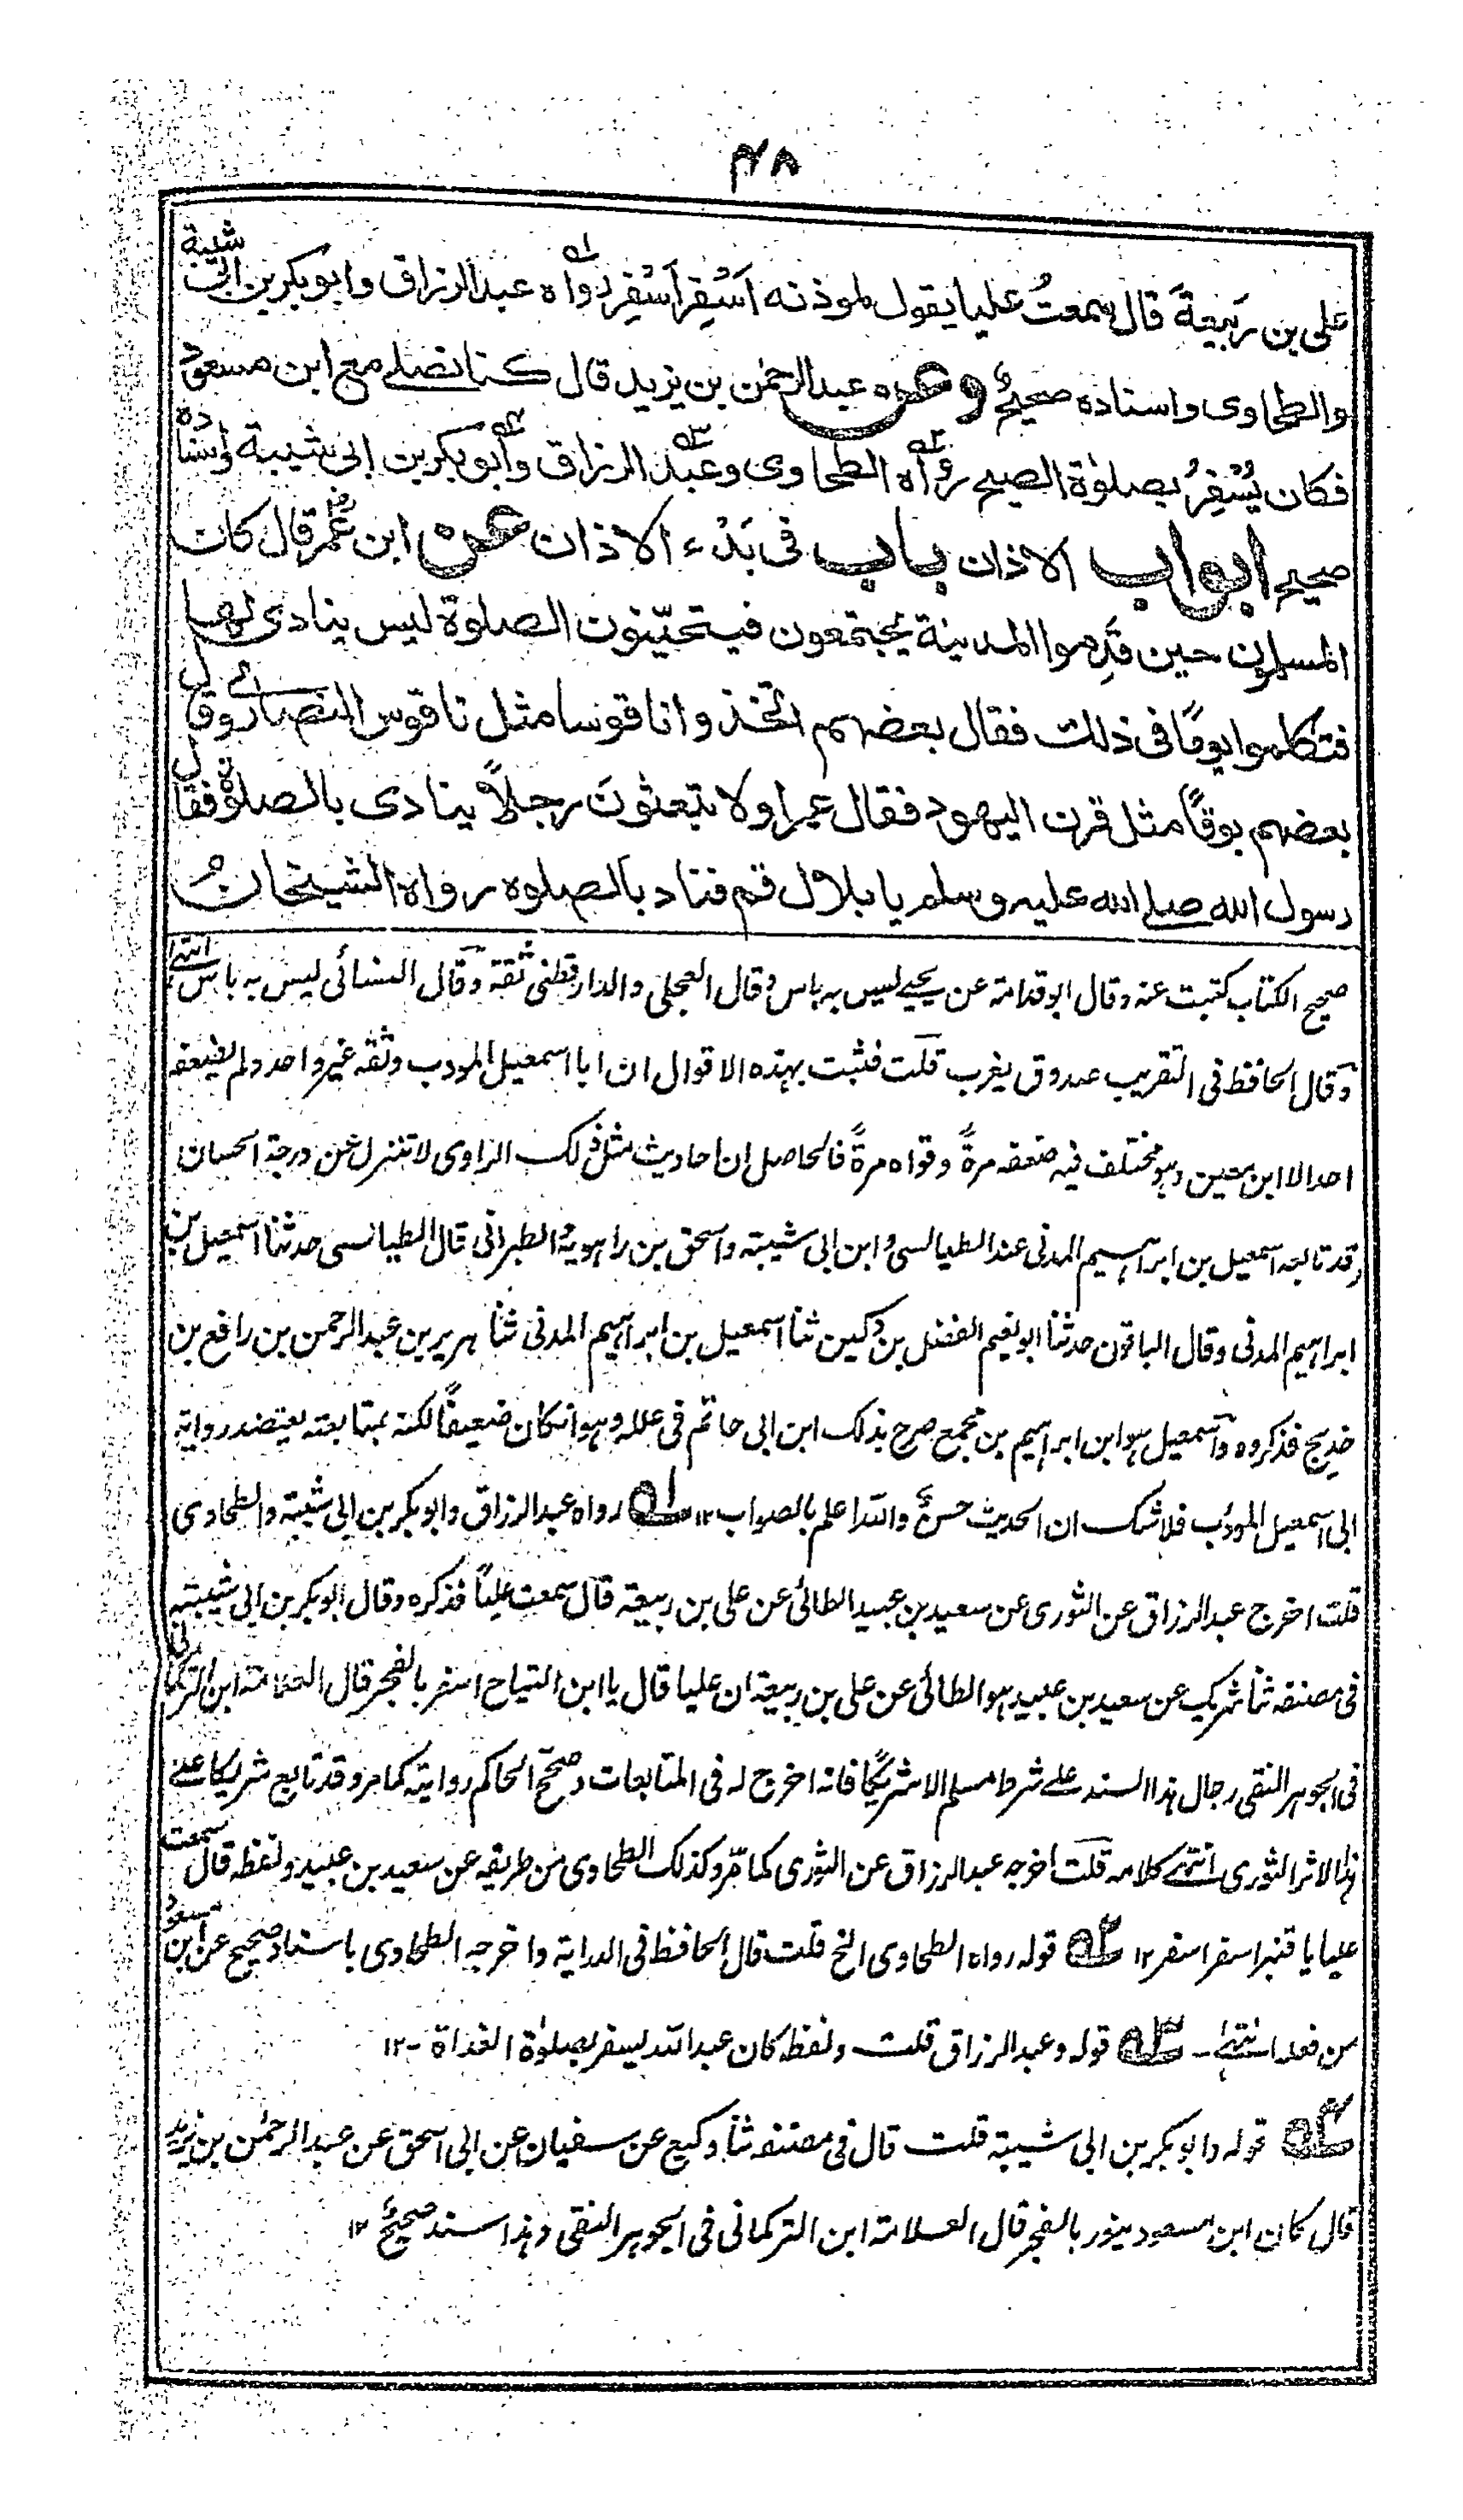 ۴۸
علی بن رَبیعةَ قال سمعتُ علیا یقول لموذنه اَسْفِرْ اَسْفِرْ رواه عبدالرزاق وابوبکر بن ابی شیبة
والطحاوی واسناده صحیحٌ وعن عبدالرحمٰن بن یزید قال کنا نصلے مع ابن مسعود
فکان یُسْفِرُ بصلوٰة الصبح رواه الطحاوی وعبد الرزاق وابوبکر بن ابی شیبة واسناده
صحیح ابواب الاذان باب فی بَدْء الاذان عن ابن عُمَر قال کان
المسلمون حین قَدِموا المدینة یجتمعون فیتحیّنون الصلوة لیس ینادی لها
فتکلموا یومًا فی ذلك فقال بعضهم اتخذوا ناقوسا مثل ناقوس النصارےٰ وقال
بعضهم بوقًا مثل قرن الیهود فقال عمر اولا تبعثونَ رجلًا ینادی بالصلوٰة فقال
رسول الله صلے الله علیه وسلم یا بلال قم فناد بالصلوه رواه الشیخان
صحیح الکتاب کتبت عنه وقال ابوقدامة عن یحیے لیس به باس وقال العجلی والدارقطنی ثقة وقال النسائی لیس به باس انتهے
وقال الحافظ فی التقریب صدوق یغرب قلت فثبت بهذه الاقوال ان ابا اسمعیل المودب وثقه غیر واحد ولم یضعفه
احد الا ابن معین وهو مختلف فیه ضعفه مرةً وقواه مرةً فالحاصل ان احادیث مثل ذلک الراوی لا تنزل عن درجة الحسان
وقد تابعه اسمعیل بن ابراهیم المدنی عند الطیالسی وابن ابی شیبة واسحق بن راهویه والطبرانی قال الطیالسی حدثنا اسمعیل بن
ابراهیم المدنی وقال الباقون حدثنا ابونعیم الفضل بن دکین ثنا اسمعیل بن ابراهیم المدنی ثنا هریر بن عبدالرحمن بن رافع بن
خدیج فذکروه واسمعیل هو ابن ابراهیم بن مجمع صرح بذلک ابن ابی حاتم فی علله وهو انکان ضعیفًا لکنه بمتابعته یعتضد روایة
ابی اسمعیل المودب فلا شک ان الحدیث حسنٌ والله اعلم بالصواب ۱۲ ۱؎ رواه عبدالرزاق وابوبکر بن ابی شیبة والطحاوی
قلت اخرج عبدالرزاق عن الثوری عن سعید بن عبید الطائی عن علی بن ربیعة قال سمعت علیًا فذکره وقال ابوبکر بن ابی شیبة
فی مصنفه ثنا شریک عن سعید بن عبید هو الطائی عن علی بن ربیعة ان علیا قال یا ابن التیاح اسفر بالفجر قال العلامة ابن الترکمانی
فی الجوهر النقی رجال هذا السند علے شرط مسلم الا شریکًا فانه اخرج له فی المتابعات وصحّح الحاکم روایته کما مر وقد تابع شریکا علے
هذا الاثر الثوری انتهے کلامه قلت اخرجه عبدالرزاق عن الثوری کما مرّ وکذلک الطحاوی من طریقه عن سعید بن عبید ولفظه قال سمعت
علیا یا قنبر اسفر اسفر ۱۲ ۲؎ قوله رواه الطحاوی الخ قلت قال الحافظ فی الدرایة واخرجه الطحاوی باسناد صحیح عن ابن مسعود
من فعله انتهے ـ ۳؎ قوله وعبد الرزاق قلت ولفظه کان عبدالله یسفر بصلوٰة الغداة ـ ۱۲
۴؎ قوله وابوبکر بن ابی شیبة قلت قال فی مصنفه ثنا وکیع عن سفیان عن ابی اسحق عن عبدالرحمٰن بن یزید
قال کان ابن مسعود ینور بالفجر قال العلامة ابن الترکمانی فی الجوهر النقی وهذا سند صحیحٌ ۱۲